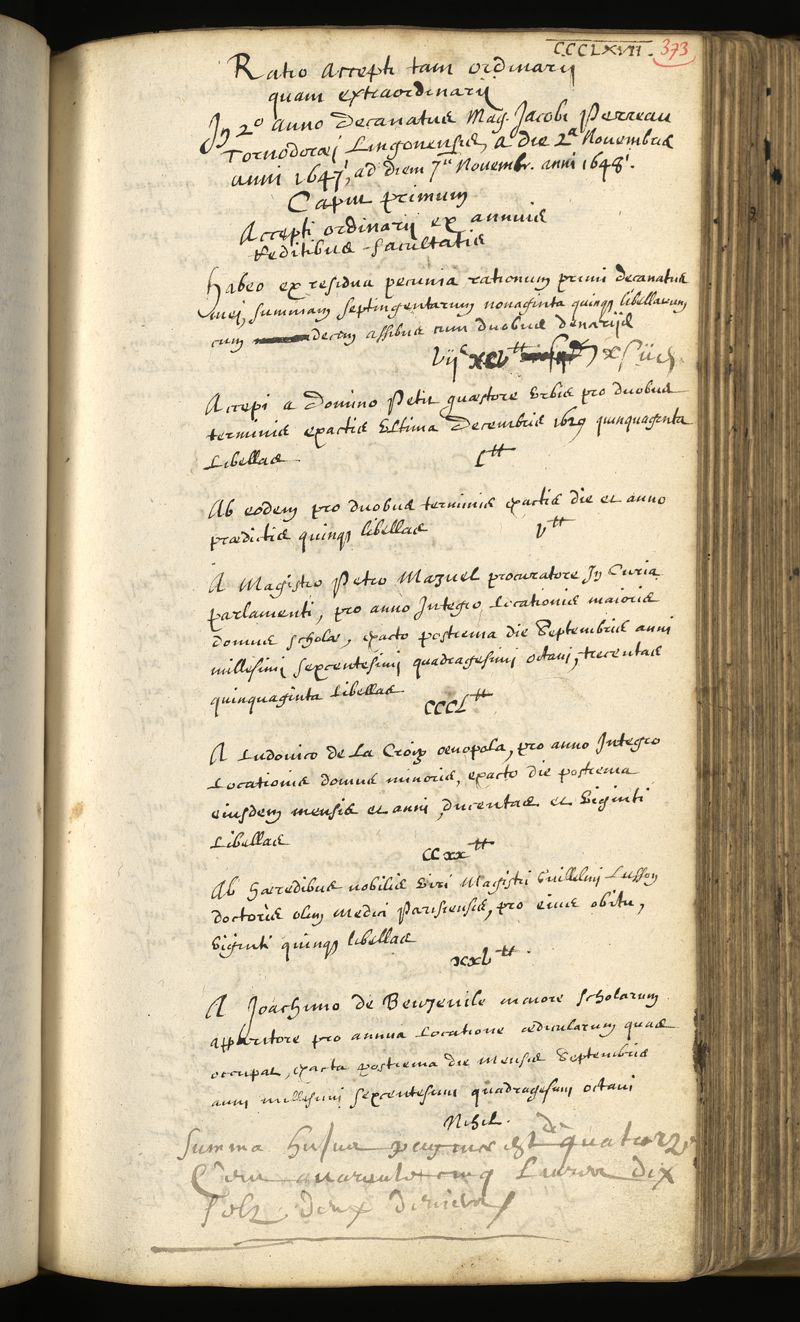 CCCLXVII. 373
Ratio accepti tam ordinarij
quam extraordinarij
In 2º anno Decanatus Mag. Jacobi Perreau
Tornodoraej Lingonensis, a die 2ª Novembris
anni 1647, ad diem 7 Novembr. anni 1648.
Caput primum
Accepti ordinarij ex annuis
Reditibus facultatis
Habeo ex residua pecunia rationum primi decanatus
mej, summam septingentarum nonaginta quinq libellarum
cum decem assibus cum duobus denarijs
Accepi a Domino Petit quaestore Urbis pro duobus
terminis exactis Ultima Decembris 1629 quinquaginta
Libellas L tt
Ab eodem pro duobus terminis exactis die et anno
praedictis quinq libellas v tt
A Magistro Petro Mazuel procuratore In Curia
parlamenti, pro anno Integro Locationis maioris
domus scholae, exacto postrema die Septembris anni
millesimi sexcentesimi quadragesimi octavi, trecentas
quinquaginta Libellas CCCL tt
A Ludovico de La Croix oenopola, pro anno Integro
Locationis domus minoris, exacto die postrema
eiusdem mensis et anni, ducentas et Viginti
Libellas
CCxx tt
Ab Haeredibus nobilis Viri Magistri Guillelmi Lusson
doctoris olim Medici Parisiensis, pro eius obitu,
Viginti quinq libellas
xxv tt
A Joachimo de maiore scholarum
apparitore pro annua Locatione aedicularum quas
occupat, exacta postrema die mensis Septembris
anni millesimi sexcentesimi quadragesimi octavi
Nihil.
Summa hujus paginae est de quatorze
Cens quarante cinq Livres dix
solz deux deniers